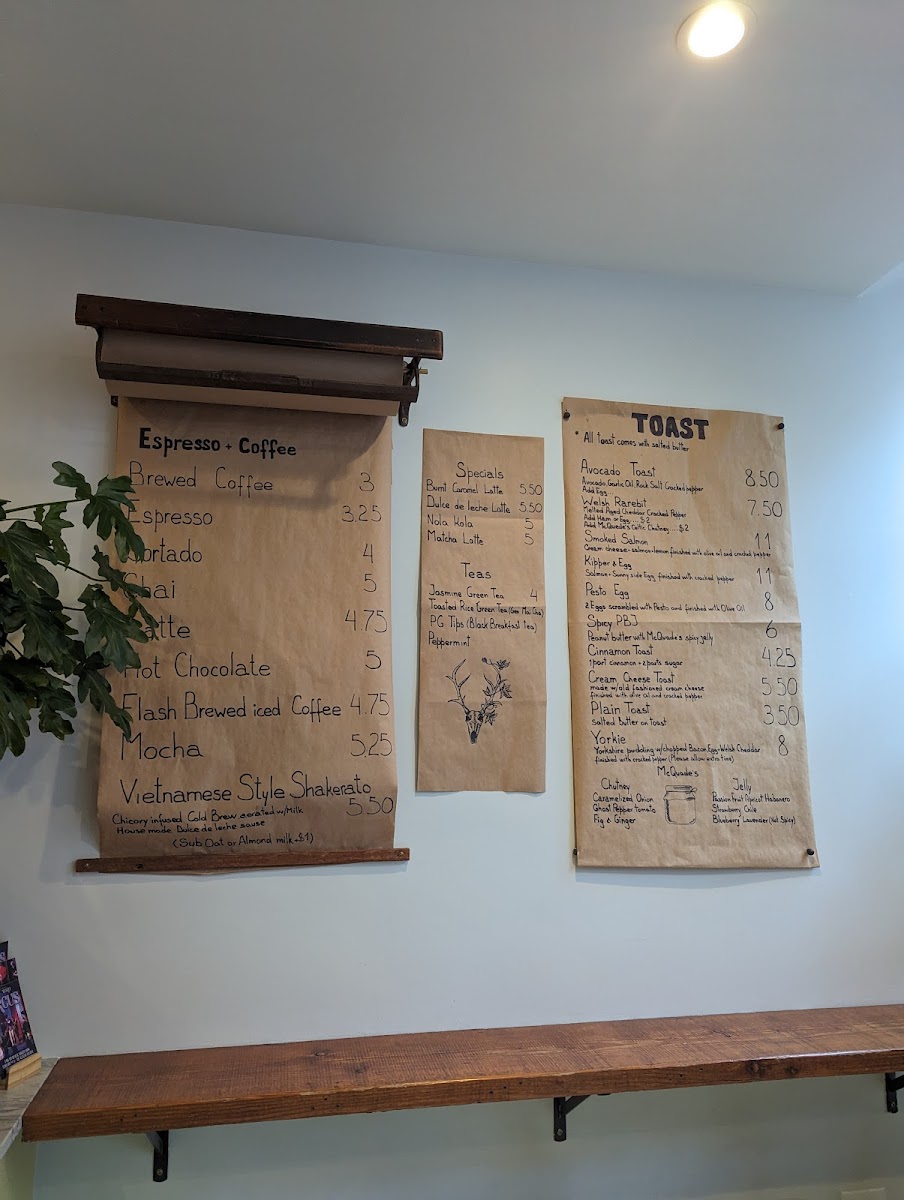 Espresso + Coffee
Brewed Coffee 3
Espresso 3.25
Cortado 4
Chai 5
Latte 4.75
Hot Chocolate 5
Flash Brewed iced Coffee 4.75
Mocha 5.25
Vietnamese Style Shakerato
5.50
Chicory infused Cold Brew aerated w/Milk
House made Dulce de leche sause
(Sub Oat or Almond milk +$1)
Specials
Burnt Caramel Latte 5.50
Dulce de leche Latte 5.50
Nola Kola 5
Matcha Latte 5
Teas
Jasmine Green Tea 4
Toasted Rice Green Tea (Gen Mai Cha)
PG Tips (Black Breakfast tea)
Peppermint
TOAST
* All toast comes with salted butter
Avocado Toast 8.50
Avocado, Garlic Oil, Rock Salt Cracked pepper
Add Egg
Welsh Rarebit 7.50
Melted Aged Cheddar Cracked Pepper
Add Ham or Egg.....$2
Add McQuade's Celtic Chutney.....$2
Smoked Salmon 11
Cream cheese - salmon - lemon finished with olive oil and cracked pepper
Kipper & Egg 11
Salmon + Sunny side Egg, finished with cracked pepper
Pesto Egg 8
2 Eggs scrambled with Pesto and finished with Olive Oil
Spicy PBJ 6
Peanut butter with McQuade's spicy jelly
Cinnamon Toast 4.25
1 part cinnamon + 2 parts sugar
Cream Cheese Toast 5.50
made w/old fashioned cream cheese
finished with olive oil and cracked pepper
Plain Toast 3.50
Salted Butter on Toast
Yorkie 8
Yorkshire pudding w/chopped Bacon Egg + Welsh Cheddar
finished with cracked pepper (Please allow extra time)
McQuade's
Chutney
Caramelized Onion
Ghost Pepper Tomato
Fig & Ginger
Jelly
Passion Fruit Apricot Habanero
Strawberry Chile
Blueberry Lavender (Not Spicy)